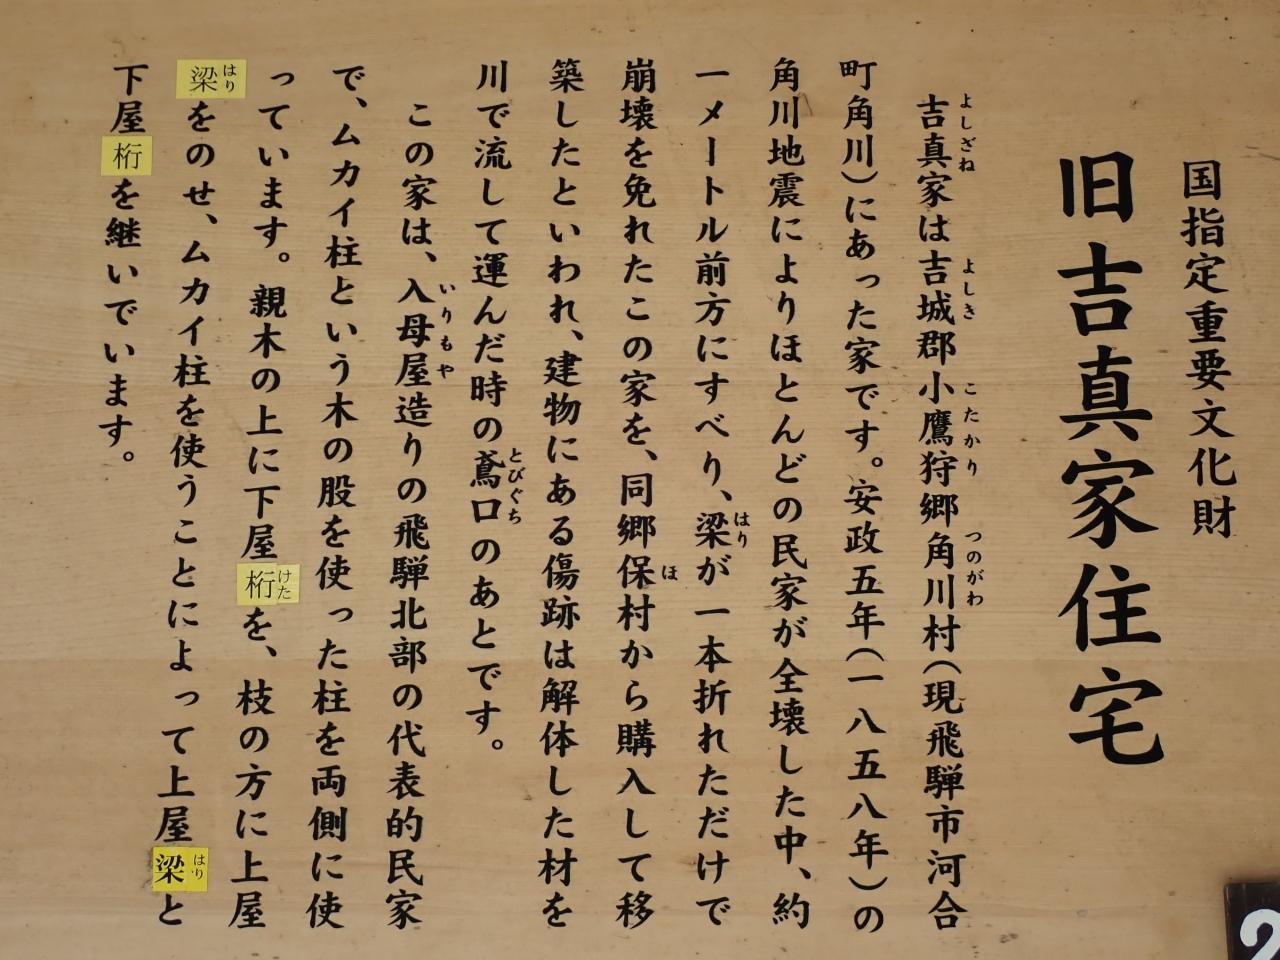 国指定重要文化財
旧吉真家住宅
吉真家は吉城郡小鷹狩郷角川村(現飛騨市河合
よしざね よしき こたかり つのがわ
町角川)にあった家です。安政五年(一八五八年)の
角川地震によりほとんどの民家が全壊した中、約
一メートル前方にすべり、梁が一本折れただけで
はり
崩壊を免れたこの家を、同郷保村から購入して移
ほ
築したといわれ、建物にある傷跡は解体した材を
川で流して運んだ時の鳶口のあとです。
とびぐち
この家は、入母屋造りの飛騨北部の代表的民家
いりもや
で、ムカイ柱という木の股を使った柱を両側に使
っています。親木の上に下屋桁を、枝の方に上屋
けた
梁をのせ、ムカイ柱を使うことによって上屋梁と
はり はり
下屋桁を継いでいます。
2